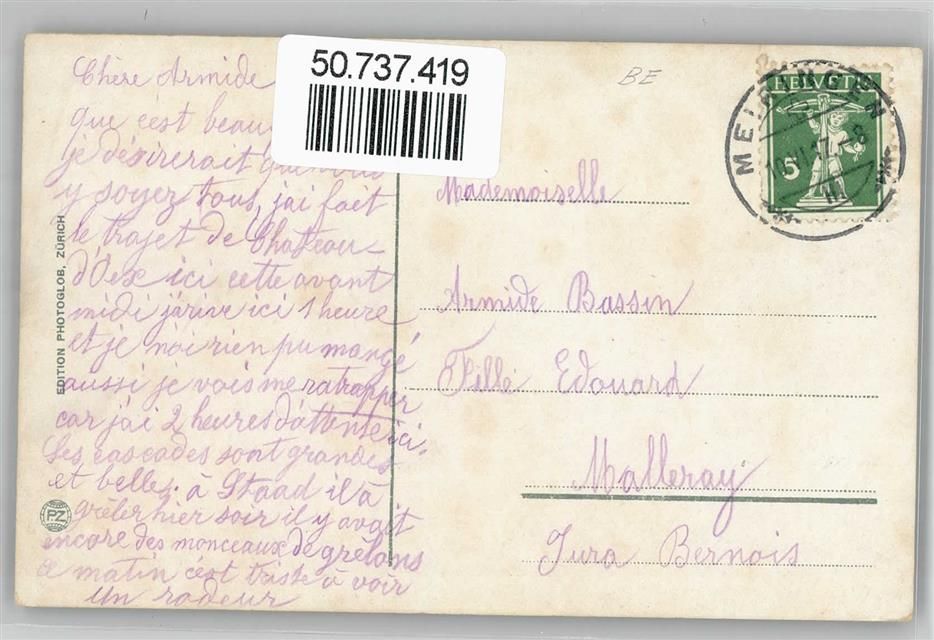 Chère Armide
que c'est beau
je désirerait que vous
y soyez tous, j'ai fait
le trajet de Chateau
d'Oex ici cette avant
midi j'arive ici 1 heure
et je n'ai rien pu mangé
aussi je vais me ratrapper
car j'ai 2 heures d'attente ici.
Les cascades sont grandes
et belles. à Staad il à
grêler hier soir il y avait
encore des monceaux de grêlons
ce matin c'est triste à voir
Un rodeur
EDITION PHOTOGLOB, ZÜRICH
PZ
50.737.419
BE
HELVETIA
5
MEIRINGEN
10.VI.17.-8
Mademoiselle
Armide Bassin
Fille Edouard
Malleray
Jura Bernois